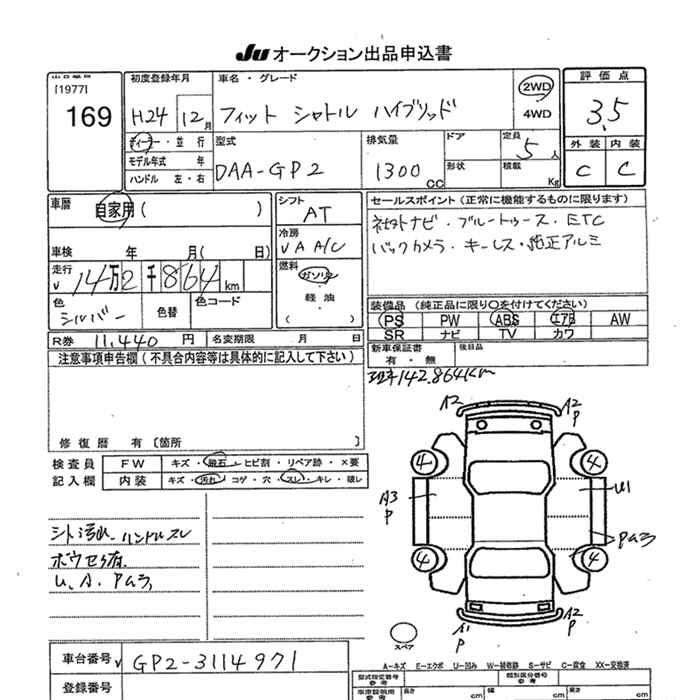 JU オークション出品申込書
出品番号 初度登録年月 車名・グレード 2WD 評価点
[1977] 169 H24 12月 フィット シャトル ハイブリッド 4WD 3.5
ディーラー・並行 型式 排気量 ドア 定員 外装 内装
モデル年式 年 DAA-GP2 1300cc 形状 5人 C C
ハンドル 左・右 積載 Kg
車歴 自家用( ) シフト AT セールスポイント(正常に機能するものに限ります)
冷房 社外ナビ・ブルートゥース・ETC
車検 年 月( 日) V A A/C バックカメラ・キーレス・純正アルミ
走行 V 14万2千864km 燃料 ガソリン
色 シルバー 色替 色コード 軽油 装備品(純正品に限り○を付けてください)
( ) PS PW ABS エアB AW
R券 11,440円 名変期限 月 日 SR ナビ TV カワ
注意事項申告欄(不具合内容等は具体的に記入して下さい) 新車保証書 後日品
有・無
142.864km
修復歴 有〔箇所 〕 A2 A2 P
検査員 FW キズ・飛石・ヒビ割・リペア跡・×要 4 4
記入欄 内装 キズ・汚れ・コゲ・穴・スレ・キレ・破レ U1
A3 P
シート汚れ. ハンドルスレ Pムラ
4 4
U、A、Pムラ
A1 P A2 P
スペア
車台番号 V GP2-3114971 A-キズ E-エクボ U-凹み W-補修跡 S-サビ C-腐食 XX-交換済
登録番号 型式指定番号 参考 類別区分番号 参考
長さ cm 幅 cm 高さ cm